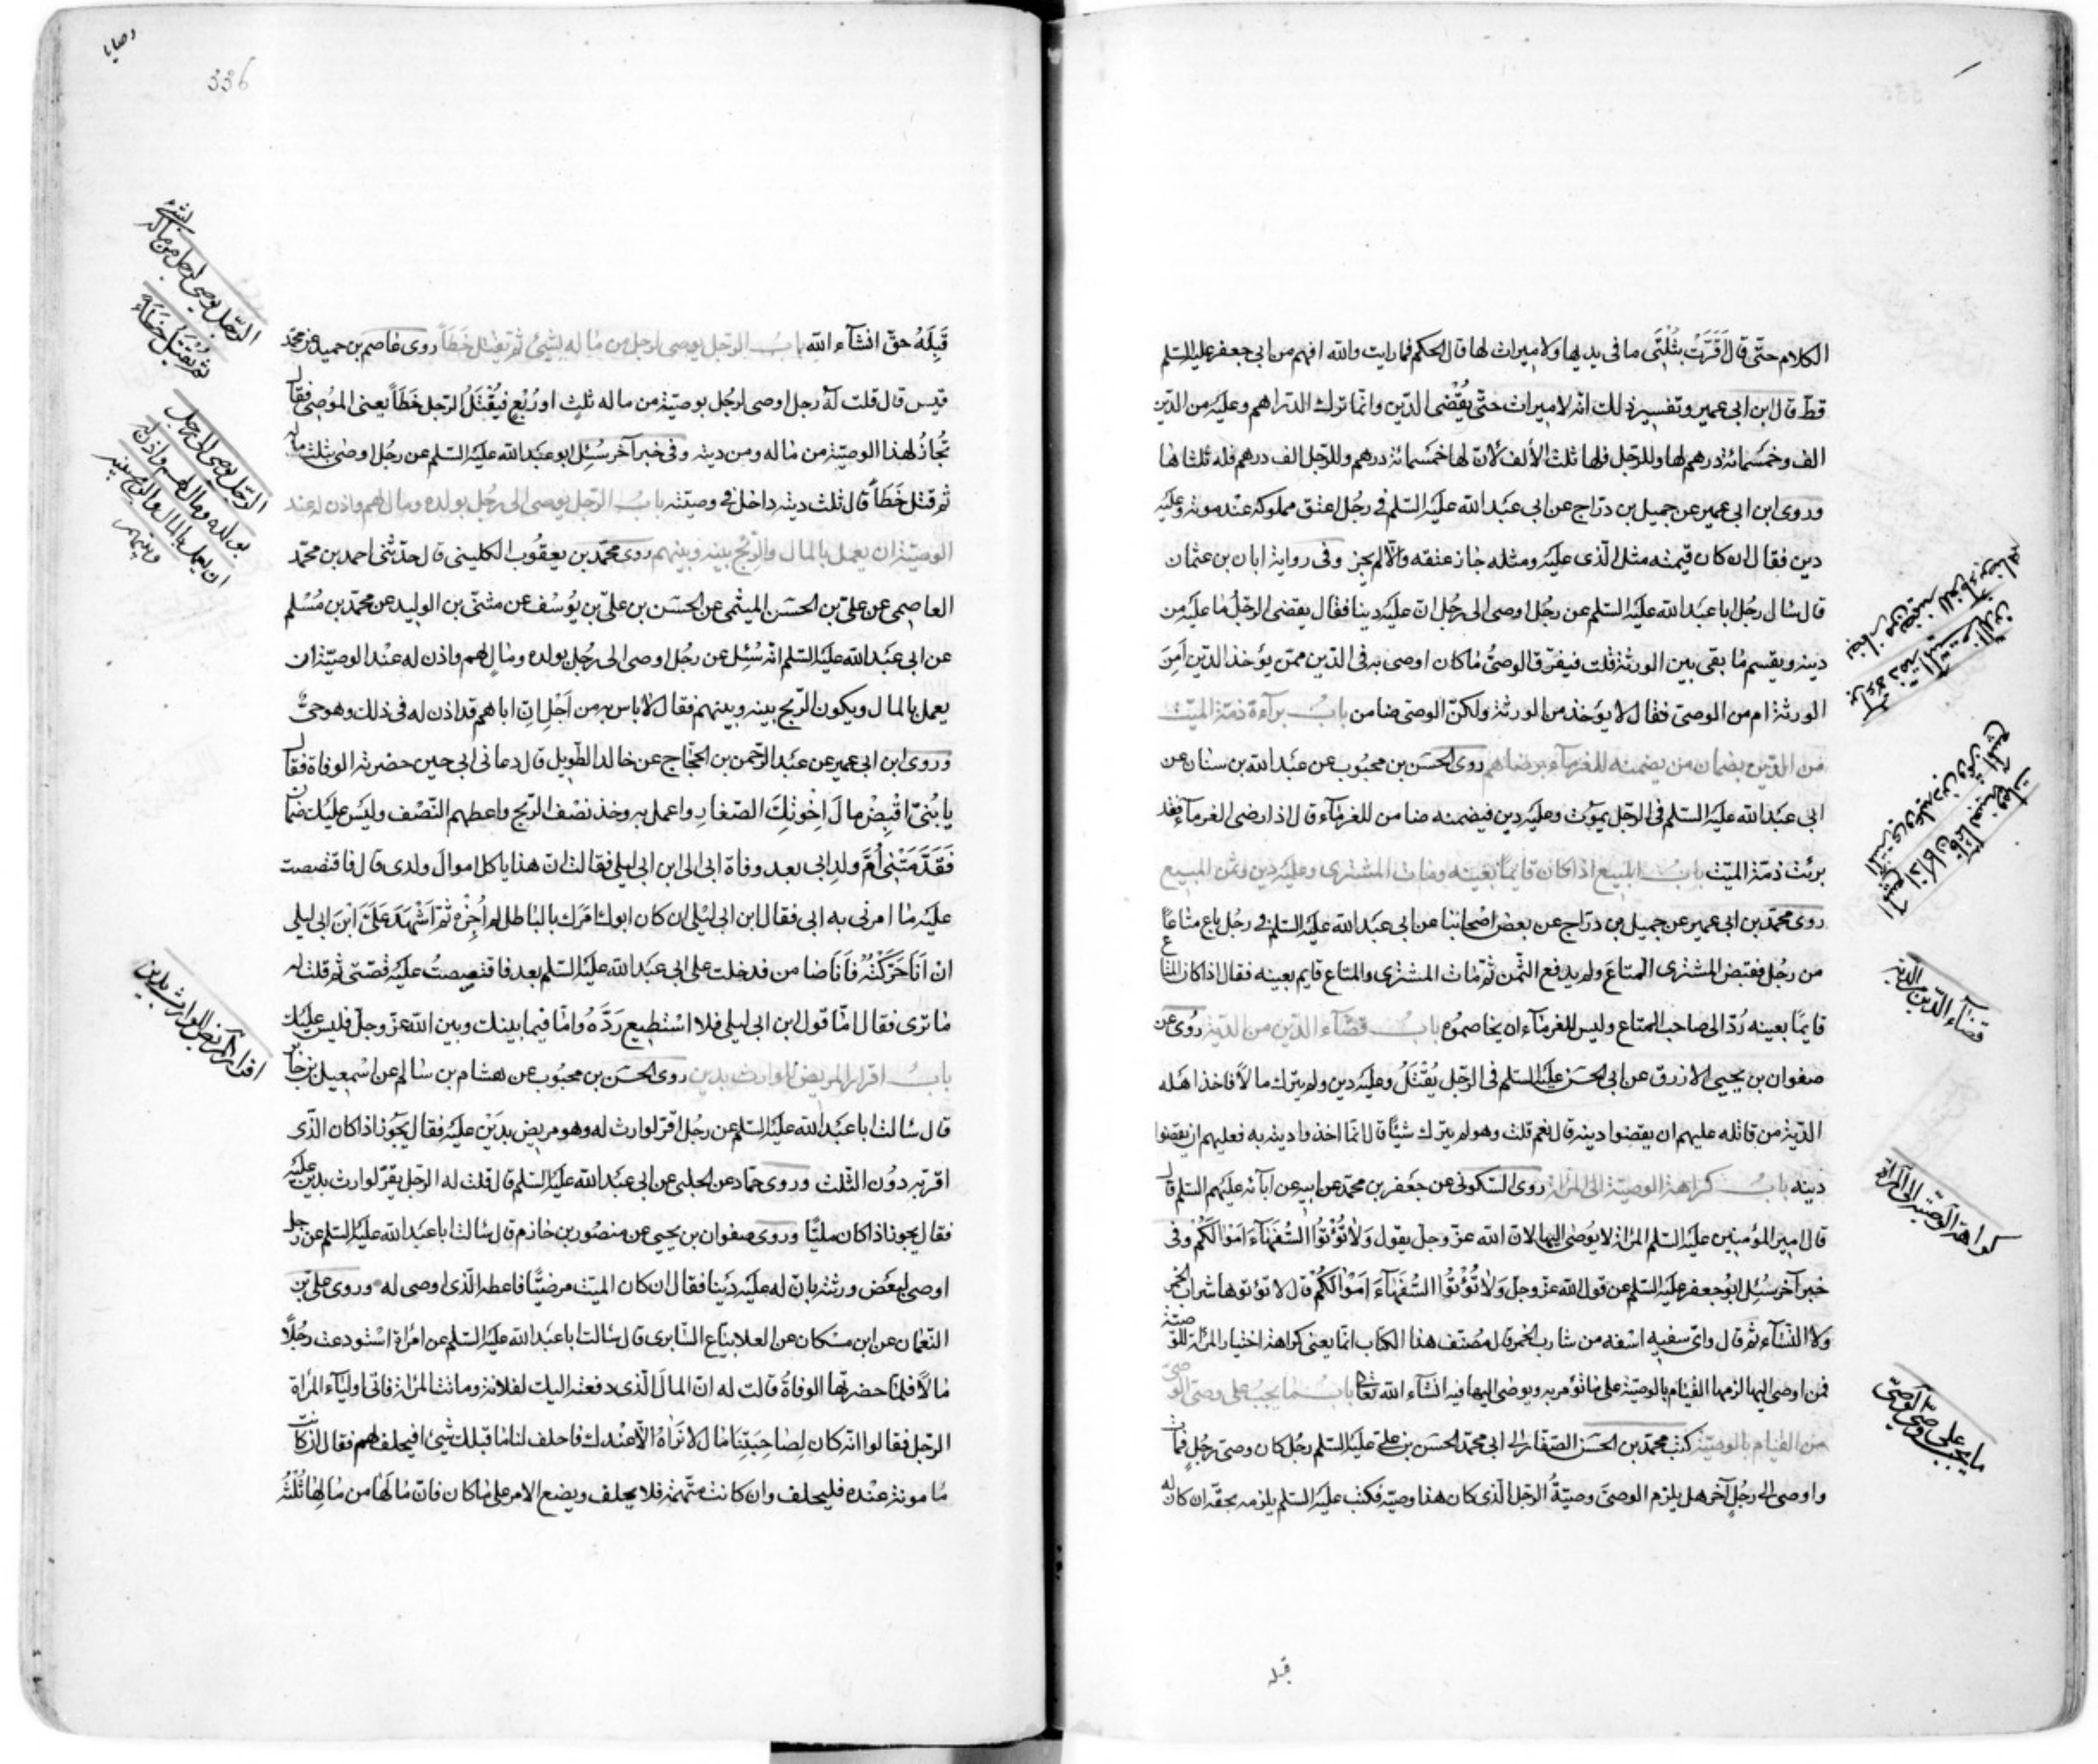 الكلام حتّى قال اَقَرَّتْ بثُلُثَى ما فى يديها ولا ميراث لها قال الحكم فما رايت والله افهم من ابى جعفر عليه السّلم
قطّ قال ابن ابى عمير وتفسير ذلك انّه لا ميراث حتّى يُقْضى الدّين وانّما ترك الف درهم وعليه من الدّين
الف وخمسمائة درهم لها وللرّجل فلها ثلث الألف لأنّ لها خمسمائة درهم وللرّجل الف درهم فله ثلثاها
وروى ابن ابى عمير عن جميل بن درّاج عن ابى عبد الله عليه السّلم فى رجُل اعتق مملوكه عند موته وعليه
دين فقال ان كان قيمته مثل الّذى عليه ومثله جاز عتقه والّا لم يجز وفى رواية ابان بن عثمان
قال سال رجُل ابا عبد الله عليه السّلم عن رجُل اوصى الى رجُل انّ عليه دينا فقال يقضى الرّجل ما عليه من
دينه ويقسم ما بقى بين الورثة قلت فيفرّق الوصىُّ ما كان اوصى به فى الدّين ممّن يؤخذ الدّين اَمِنَ
الورثة ام من الموصى فقال لا يؤخذ من الورثة ولكنّ الوصى ضامن بابُ براءة ذمّة الميّت
من الدّين بضمان من يضمنه للغرماء برضاهم روى الحسَن بن محبُوب عن عبد الله بن سنان عن
ابى عبد الله عليه السّلم فى الرّجل يموت وعليه دين فيضمنه ضامن للغرماء قال اذا رضى الغرماء فقد
برئت ذمّة الميّت بابُ المبيع اذا كان قايمًا بعينه ومات المشترى وعليه دين وثمن المبيع
روى محمّد بن ابى عمير عن جميل بن درّاج عن بعض اصْحابنا عن ابى عبد الله عليه السّلم فى رجُل باع متاعًا
من رجُل فقبض المشترى المتاعَ ولم يدفع الثّمن ثمّ مات المشترى والمتاع قايم بعينه فقال اذا كان المتاع
قايمًا بعينه رُدّ الى صاحب المتاع وليس للغرماء ان يخاصموُه بابُ قضاء الدّين من الدّية روُى عن
صفوان بن يحيى الازرق عن ابى الحسَن عليه السّلم فى الرّجل يُقْتَلُ وعليه دين ولم يترك مالاً فاخذ اهله
الدّية من قاتله عليهم ان يقضوا دينه قال نعم قلت وهو لم يترك شيئًا قال انّما اخذوا ديته به فعليهم ان يقضوا
دينه بابُ كراهة الوصيّة الى المرأة روى السّكونى عن جعفر بن محمّد عن ابيه عن آبائه عليهم السّلم قال
قال امير المؤمنين عليه السّلم المرأة لا يوُصَى اليها لانّ الله عزّ وجلّ يقول وَلَا تُؤْتُوُا السُّفَهَآءَ اَمْوَالَكُمْ وفى
خبر آخر سُئِل ابُو جعفر عليه السّلم عن قول الله عزّ وجلّ وَلَا تُؤْتُوُا السُّفَهَآءَ اَمْوَالَكُمْ قال لا تؤتوها شرّاب الخمر
ولا النّساء ثمّ قال واىّ سفيه اسْفه من شارب الخمر قال مُصَنّف هذا الكتاب انّما يعنى كراهة اختيار المرأة للوصيّة
فمن اوصى اليها لزمها القيام بالوصيّة على ما تؤمر به ويوصى اليها فيه انشاء الله تعالى بابُ ما يجبُ على وصىّ الوصىّ
من القيام بالوصيّة كتب محمّد بن الحسَن الصّفّار الى ابى محمّد الحسَن بن علىّ عليه السّلم رجُل كان وصىّ رجُلٍ فمات
واوصى الى رجُلٍ آخر هل يلزم الوصىَّ وصيّةُ الرّجل الّذى كان هذا وصيّه فكتب عليه السّلم يلزمه بحقّه ان كان له
قبله
براءة ذمة الميت من الدين
بضمان من يضمنه للغرماء برضاهم
المبيع اذا كان قايمًا بعينه ومات
المشترى وعليه دين وثمن المبيع
قضاء الدّين من الدّية
كراهة الوصيّة الى المرأة
ما يجب على وصىّ الوصىّ
وصايا
336
قِبَلَهُ حقّ انشآء الله بابُ الرّجل يوصى لرجل من ماله بشىء ثمّ يقتل خَطَأً روى عاصم بن حميد عن محمّد
قيس قال قلت له رجل اوصى لرجُل بوصيّة من ماله ثلثٍ او رُبْعٍ فيُقْتَلُ الرّجل خَطَأً يعنى الموُصى فقال
تُجازُ لهذا الوصيّة من ماله ومن ديته وفى خبر آخر سُئِل ابو عبد الله عليه السّلم عن رجُل اوصى بثلث ماله
ثمّ قتل خَطَأً قال ثلث ديته داخل فى وصيّته بابُ الرّجل يوصى الى رجُل بولده ومال لهم واذن له عند
الوصيّة ان يعمل بالمال والرّبْح بينه وبينهم روى محمّد بن يعقُوب الكلينى قال حدّثنى احمد بن محمّد
العاصمى عن علىّ بن الحسَن الميثمى عن الحسَن بن علىّ بن يوُسُف عن مثنّى بن الوليد عن محمّد بن مُسْلم
عن ابى عبد الله عليه السّلم انّه سُئِل عن رجُل اوصى الى رجُل بولده ومالٍ لهم واذن له عند الوصيّة ان
يعمل بالمال ويكون الرّبح بينه وبينهم فقال لا باس به من اَجْلِ انّ اباهم قد اذن له فى ذلك وهو حىٌّ
وروى ابن ابى عمير عن عبد الرّحمن بن الحجّاج عن خالد الطّويل قال دعانى ابى حين حضرته الوفاة فقال
يا بُنَىّ اقْبِضْ مالَ اِخْوَتِكَ الصّغارِ واعمل به وخذ نصْف الرّبح واعطهم النّصْف وليْسَ عليك ضمان
فَقَدَّمَتْنى اُمُّ ولدِ ابى بعد وفاة ابى الى ابن ابى ليلى فقالت انّ هذا ياكل اموالَ ولدى قال فاقتصصت
عليه ما امرنى به ابى فقال ابن ابى ليْلى ان كان ابوك امَرَك بالباطل لم اُجِزْه ثمّ اَشْهَدَ عَلَىَّ ابْنُ ابى ليلى
ان اَنَا حَرّكْتُهُ فاَنَا ضامن فدخلت على ابى عبد الله عليه السّلم بعد فاقتصصتُ عليه قصّتى ثمّ قلت له
ما ترى فقال امّا قول ابن ابى ليلى فلا اسْتطيع رَدَّهُ وامّا فيما بينك وبين الله عزّ وجلّ فليس عليك
بابُ اقرار المريض للوارث بدين روى الحسَن بن محبُوب عن هشام بن سالم عن اسْمعيل بن جابر
قال سالت ابا عبد الله عليه السّلم عن رجُل اقرّ لوارث له وهو مريض بدَيْن عليه فقال يجُوز اذا كان الّذى
اقرّ به دوُن الثّلث وروى حمّاد عن الحلبى عن ابى عبد الله عليه السّلم قال قلت له الرّجل يقرّ لوارث بدين عليه
فقال يجوز اذا كان مليًّا وروى صفوان بن يحيى عن منصُور بن حازم قال سالت ابا عبد الله عليه السّلم عن رجل
اوصى لبعْض ورثته بانّ له عليه دَيْنا فقال ان كان الميّت مرضيًّا فاعطه الّذى اوصى له وروى علىّ بن
النّعمان عن ابن مسْكان عن العلا بيّاع السّابرى قال سالت ابا عبد الله عليه السّلم عن امْراة اسْتودعت رجُلًا
مالًا فلمّا حضرتْها الوفاةُ قالت له انّ المالَ الّذى دفعته اليك لفلانة وماتت المراة فاتى اولياء المراة
الرّجل فقالوا انّه كان لِصَاحِبَتِنَا مال لا نَرَاهُ الّا عنْدك فاحلف لنا ما قبلك شىء افيحلف لهم فقال ان كانت
مامونة عنْده فليحلف وان كانت متّهمة فلا يحلف ويضع الامر على ما كان فانّ ما لَهَا من مَالِها ثُلُثُهُ
الرّجل يوصى لرجل من ماله بشىء
ثمّ يُقْتَلُ خَطَأً
الرّجل يوصى الى رجل
بولده ومال لهم واذن له
ان يعمل بالمال والربح بينه
وبينهم
اقرار المريض للوارث بدين